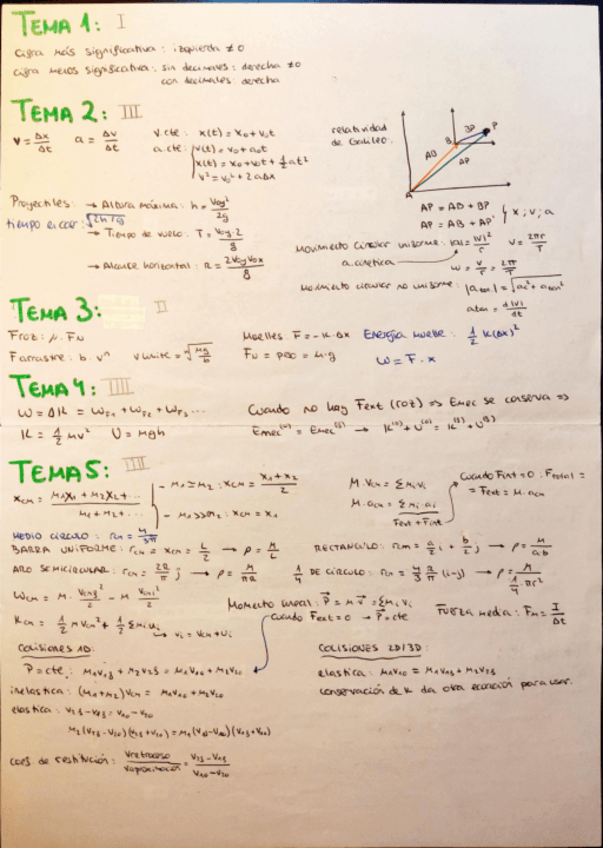 TEMA 1: I
cifra más significativa: izquierda ≠0
cifra menos significativa: sin decimales: derecha ≠0
con decimales: derecha
TEMA 2: III
v = Δx/Δt a = Δv/Δt v.cte: x(t) = x₀ + v₀t
a.cte: v(t) = v₀ + a₀t
x(t) = x₀ + v₀t + ½at²
v² = v₀² + 2aΔx
relatividad de Galileo:
A B P AB BP AP
AP = AB + BP
AP = AB + AP' } x, v, a
Proyectiles: → Altura máxima: h = v₀y²/2g
tiempo en caer: √2h/g
→ Tiempo de vuelo: T = v₀y·2/g
→ Alcance horizontal: R = 2v₀yv₀x/g
Movimiento circular uniforme: |a| = |v|²/r v = 2πr/T
a.cinética
ω = v/r = 2π/T
Movimiento circular no uniforme: |a total| = √(ac² + atan²)
atan = d|v|/dt
TEMA 3: II
Froz: μ·FN Muelles: F = -K·Δx Energía muelle: ½ K(Δx)²
Farrastre: b·vⁿ vlímite = ⁿ√(mg/b) FN = peso = m·g W = F·x
TEMA 4: IIII
W = ΔK = WF1 + WF2 + WF3... Cuando no hay Fext (roz) => Emec se conserva =>
K = ½ mv² U = mgh Emec⁽⁰⁾ = Emec⁽ᶠ⁾ → K⁽⁰⁾ + U⁽⁰⁾ = K⁽ᶠ⁾ + U⁽ᶠ⁾
TEMA 5: IIII
xCM = (M₁x₁ + M₂x₂ + ...)/(M₁ + M₂ + ...)
- M₁ ≃ M₂: xCM = (x₁ + x₂)/2
- M₁ >> M₂: xCM = x₁
M·vCM = Σmᵢvᵢ
M·aCM = Σmᵢ·aᵢ
Fext + Fint
Cuando Fint = 0: Ftotal =
= Fext = M·aCM
MEDIO CÍRCULO: rCM = 4/3π
BARRA UNIFORME: rCM = xCM = L/2 → ρ = M/L RECTÁNGULO: rCM = a/2 i + b/2 j → ρ = M/a·b
ARO SEMICIRCULAR: rCM = 2R/π j → ρ = M/πR ¼ DE CÍRCULO: rCM = 4/3 R/π (i-j) → ρ = M/¼·πr²
WCM = M·vCMf²/2 - M vCMi²/2
Momento lineal: P = M v = Σmᵢvᵢ
Cuando Fext = 0 → P = cte
Fuerza media: Fm = I/Δt
KCM = ½ MvCM² + ½ Σmᵢuᵢ
→ vᵢ = vCM + uᵢ
COLISIONES 1D: COLISIONES 2D/3D:
P = cte: M₁v₁f + M₂v₂f = M₁v₁₀ + M₂v₂₀ elástica: M₁v₁₀ = M₁v₁f + M₂v₂f
inelástica: (M₁+M₂)vCM = M₁v₁₀ + M₂v₂₀ conservación de K da otra ecuación para usar.
elástica: v₂f - v₁f = v₁₀ - v₂₀
M₂(v₂f - v₂₀)(v₂f + v₂₀) = M₁(v₁₀ - v₁f)(v₁f + v₁₀)
coef. de restitución: vretroceso/vaproximación = (v₂f - v₁f)/(v₁₀ - v₂₀)